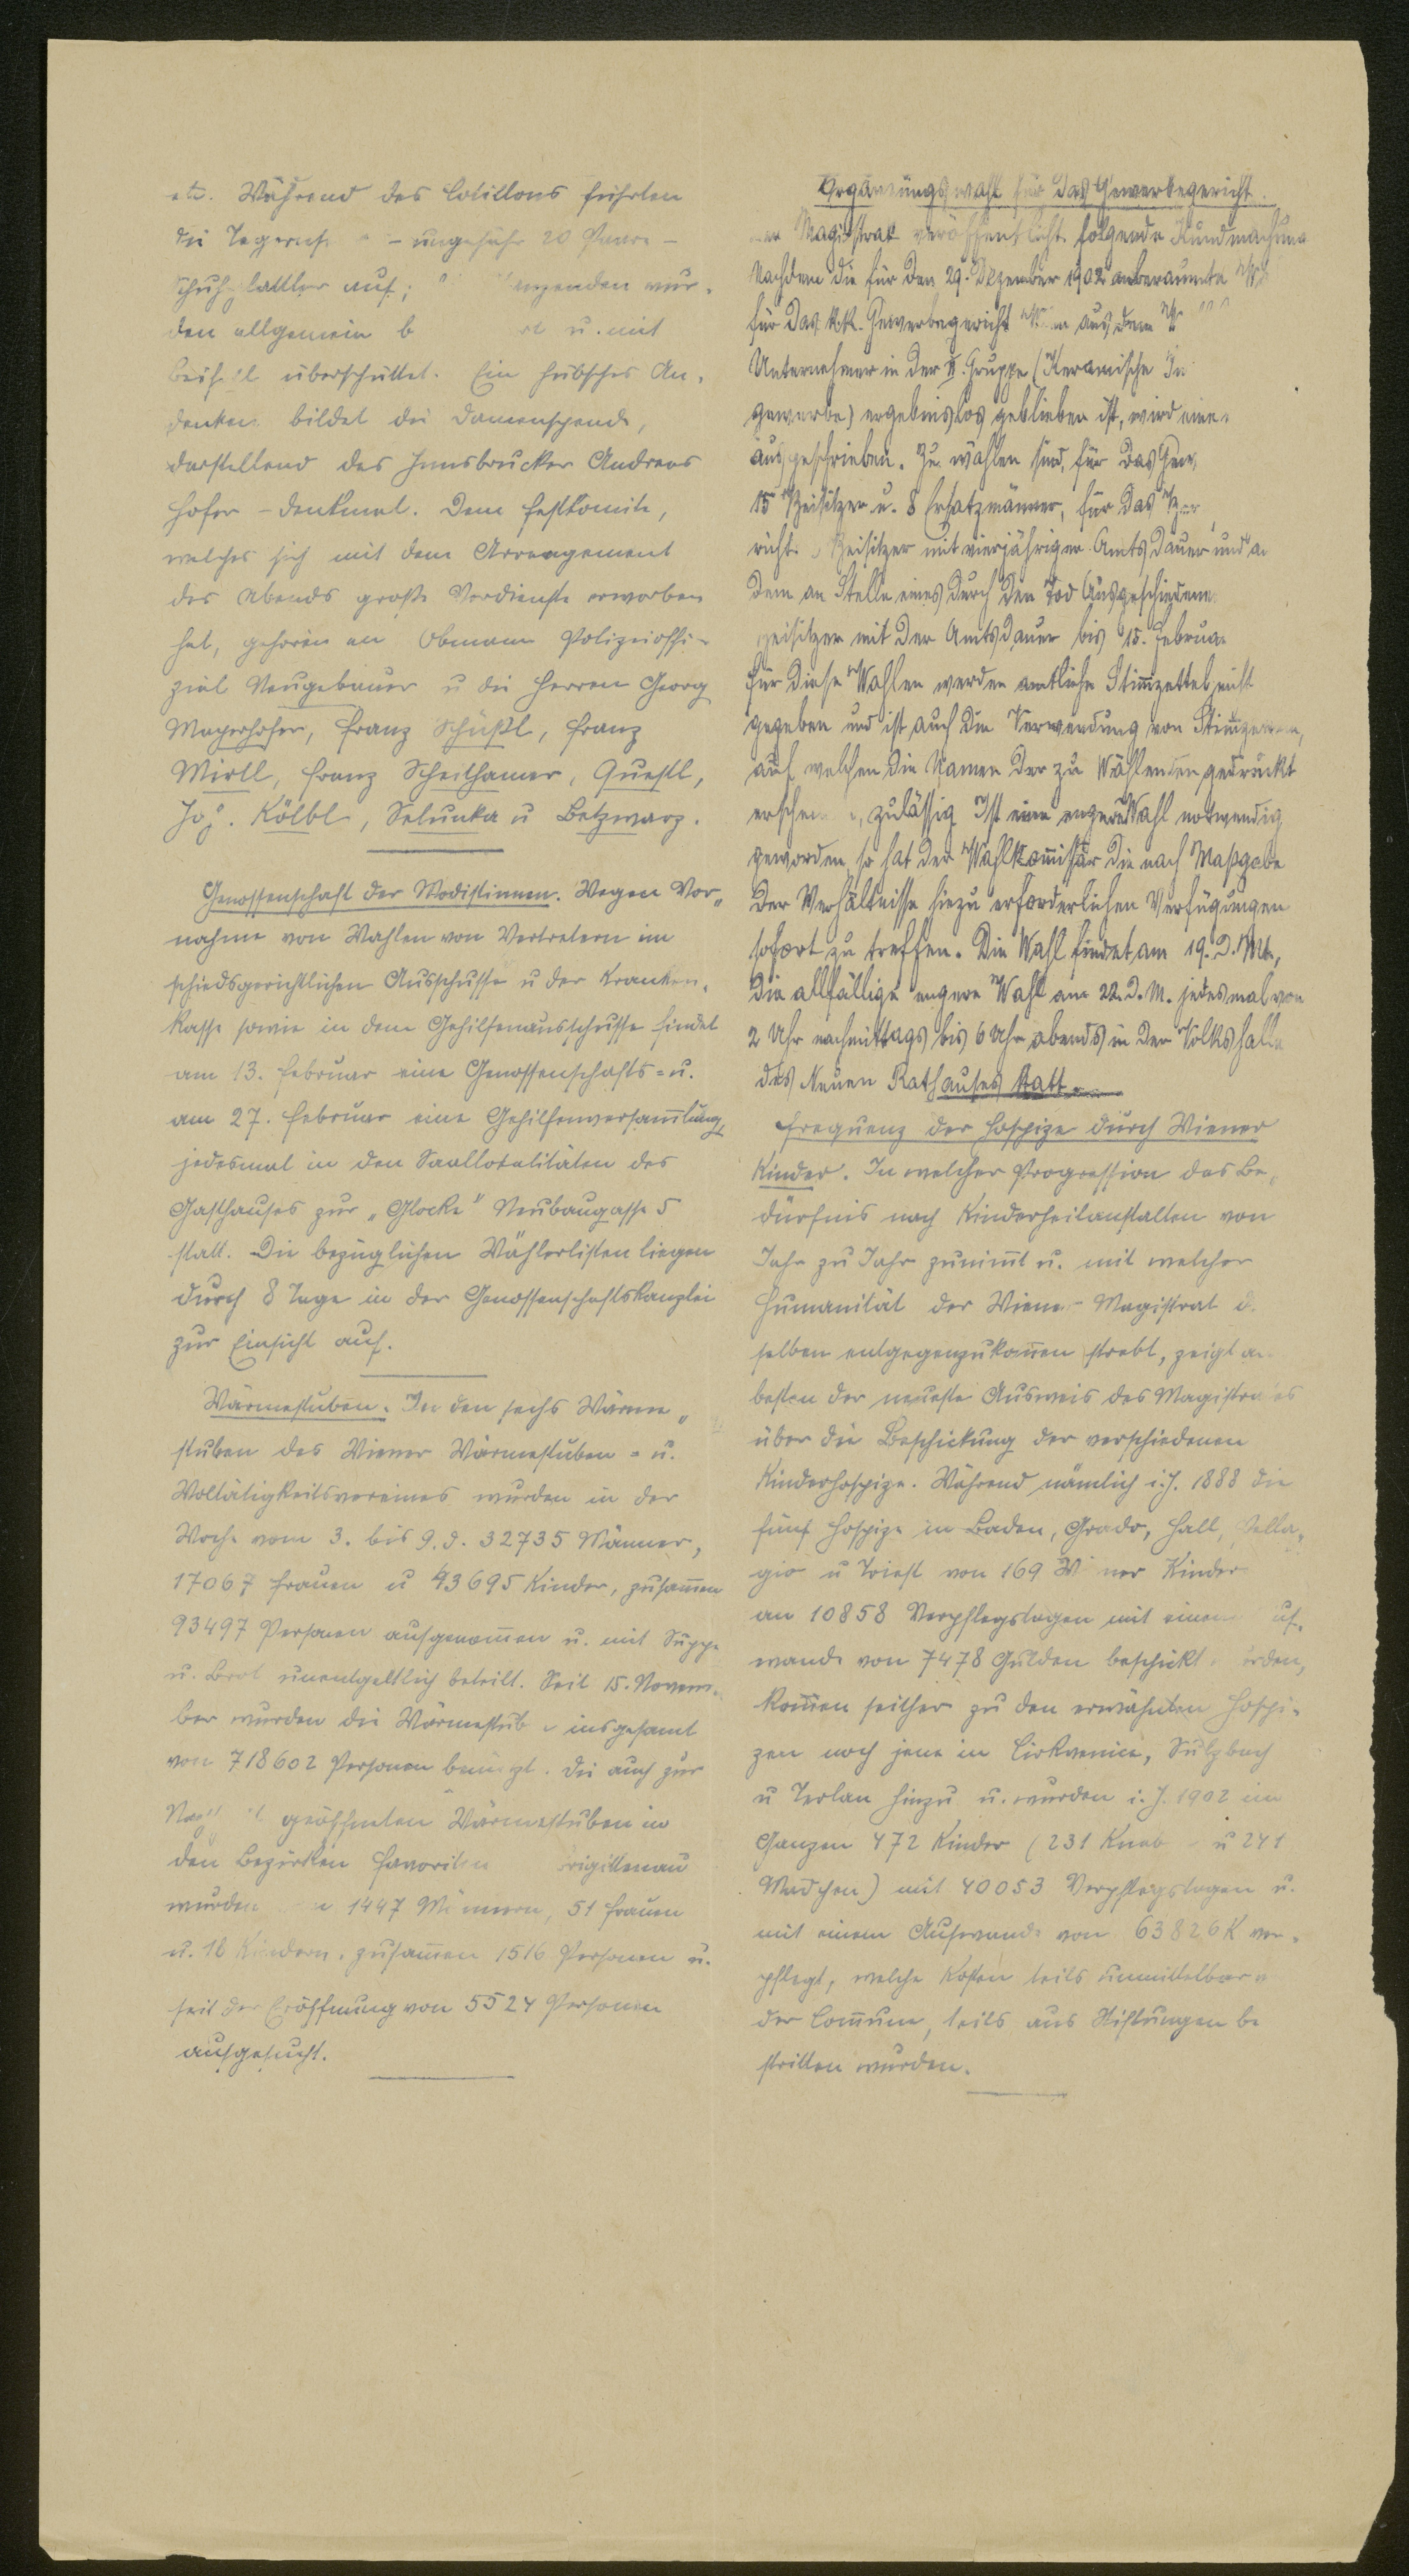 etc. Während des Cotillons führten
die – ungefähr 20 Paare –
auf; wur-
den allgemein u. mit
Beifall überschüttet. Ein hübsches An-
denken bildet die Damenspende,
darstellend das Innsbrucker Andreas
Hofer-Denkmal. Dem Festkomite,
welches sich mit dem Arrangement
des Abends große Verdienste erworben
hat, gehören an Obmann Polizeioffi-
zial Neugebauer u die Herren Georg
Mayerhofer, Franz Schüßl, Franz
Mirtl, Franz Scheilhamer, Questl,
Jos. Kölbl, Selunka u Betzwarz.
Genossenschaft der Modistinnen. Wegen Vor-
nahme von Wahlen von Vertretern im
schiedsgerichtlichen Ausschusse u der Kranken-
kasse sowie in dem Gehilfenausschusse findet
am 13. Februar eine Genossenschafts- u.
am 27. Februar eine Gehilfenversam̅lung,
jedesmal in den Saallokalitäten des
Gasthauses zur „Glocke" Neubaugasse 5
statt. Die bezüglichen Wählerlisten liegen
durch 8 Tage in der Genossenschaftskanzlei
zur Einsicht auf.
Wärmestuben. In den sechs Wärme-
stuben des Wiener Wärmestuben- u.
Woltätigkeitsvereines wurden in der
Woche vom 3. bis 9. d. 32735 Männer,
17067 Frauen u 43695 Kinder, zusam̅en
93497 Personen aufgenom̅en u. mit Suppe
u. Brot unentgeltlich beteilt. Seit 15. Novem-
ber wurden die insgesamt
von 718602 Personen benützt. Die auch zur
geöffneten Wärmestuben in
den Bezirken Favoriten
wurden 1447 Männern, 51 Frauen
u. 18 Kindern, zusam̅en 1516 Personen u.
seit der Eröffnung von 5524 Personen
aufgesucht.
Ergänzungswahl für das Gewerbegericht.
Magistrat veröffentlicht folgende Kundmachung
Nachdem die für den 29. Dezember 1902 anberaumte
für das k.k. Gewerbegericht aus dem
Unternehmer in der II. Gruppe (Keramische
gewerbe) ergebnislos geblieben ist, wird eine
ausgeschrieben. Zu wählen sind, für das
15 Beisitzer u. 8 Ersatzmänner, für das
Beisitzer mit vierjähriger Amtsdauer und
dem an Stelle eines durch den Tod
Beisitzer mit der Amtsdauer bis 15. Februar
Für diese Wahlen werden amtliche Stim̅zettel nicht
gegeben und ist auch die Verwendung von
auf welchen die Namen der zu Wählenden gedruckt
zulässig Ist eine engere Wahl notwendig
geworden, so hat der Wahlkom̅issär die nach Maßgabe
der Verhältnisse hiezu erforderlichen Verfügungen
sofort zu treffen. Die Wahl findet am 19. d. Mts.,
die allfällige engere Wahl am 22. d. M. jedesmal von
2 Uhr nachmittags bis 6 Uhr abends in der Volkshalle
des Neuen Rathauses statt.
Frequenz der Hospize durch Wiener
Kinder. In welcher Progression das Be-
dürfnis nach Kinderheilanstalten von
Jahr zu Jahr zunim̅t u. mit welcher
Humanität der Wiener Magistrat
selben entgegenzukom̅en strebt, zeigt
besten der neueste Ausweis des Magistrates
über die Beschickung der verschiedenen
Kinderhospize. Während nämlich i.J. 1888 die
fünf Hospize in Baden, Grado, Hall, Pella-
gio u Triest von 169 Wiener Kinder
an 10858 Verpflegstagen mit einem
wande von 7478 Gulden beschickt
kom̅en seither zu den erwähnten Hospi-
zen noch jene in Cirkvenice, Sulzbach
u Terlan hinzu u. wurden i. J. 1902 im
Ganzen 472 Kinder (231 u 241
Mädchen) mit 40053 Verpflegstagen u.
mit einem Aufwande von 63826 K ver-
pflegt, welche Kosten teils unmittelbar
der Com̅une, teils aus Stiftungen be
stritten wurden.